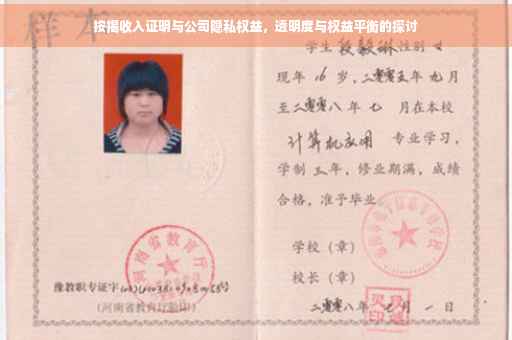 按揭收入证明与公司隐私权益，透明度与权益平衡的探讨
样本
学生段毅琳性别女
现年16岁，二零零五年九月
至二零零八年七月在本校
计算机应用 专业学习，
学制三年，修业期满，成绩
合格，准予毕业
学校（章）
校长（章）
河南省教育厅
豫教职专证字
（河南省教育厅验印）
二零零八年七月一日